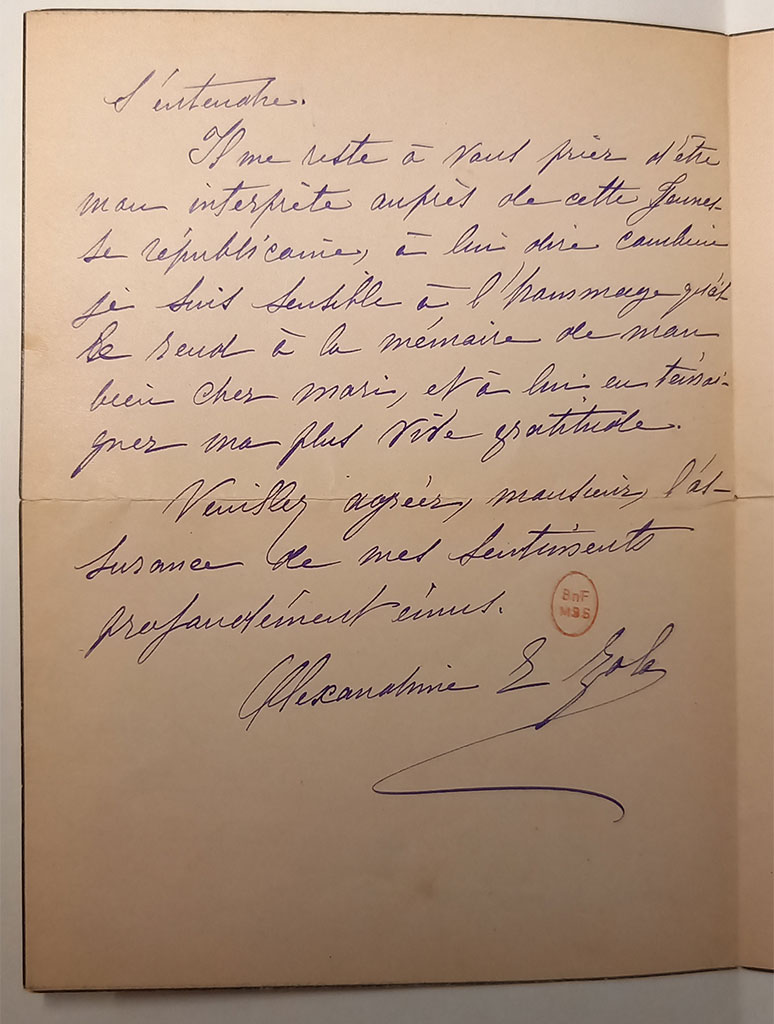 s'entendre.
Il me reste à vous prier d'être
mon interprète auprès de cette Jeunes-
se républicaine, à lui dire combien
je suis sensible à l'hommage qu'el-
le rend à la mémoire de mon
bien cher mari, et à lui en témoi-
gner ma plus vive gratitude.
Veuillez agréer, monsieur, l'as-
surance de mes sentiments
profondément émus.
BnF
MSS
Alexandrine E Zola